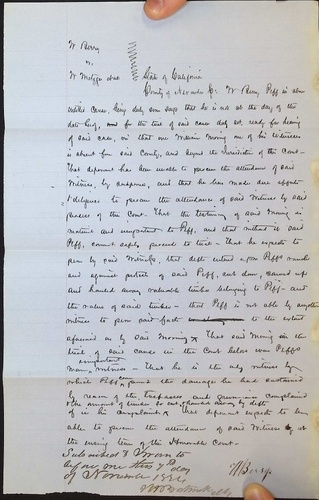 W Berry
vs
W Metzger and
State of California
County of Nevada Ss. W. Berry Peff in above
entitled cause, being duly sworn says that he is not at the day of the
date hereof, ready for the trial of said cause day set ready for hearing
of said case, in that one William Moving one of his witnesses
is absent from said County, and beyond the Jurisdiction of the Court -
That deponent has been unable to procure the attendance of said
Witness, by subpoena, and that he has made due efforts
& diligence to procure the attendance of said Witness by said
process of the Court. That the testimony of said Moving is
material and important to Peff, and that without it said
Peff, cannot safely proceed to trial - That he expects to
prove by said Witness, that defts entered upon Peffs ranch
and against protest of said Peff, cut down, sawed up
and hauled away valuable timber belonging to Peff - and
the value of said timber - that Peff is not able by any other
witness to prove said facts to the extent
aforesaid as by said Moving That said Moving on the
trial of said cause in the Court below was Peffs
important
main witness - That he is the only witness by
which Peff can prove the damage he had sustained
by reason of the trespasses and grievances complained
& the amount of timber so cut & hauled away by defts
of in his complaint That deponent expects to be
able to procure the attendance of said Witness by at
the ensuing term of this Honorable Court -
Subscribed & Sworn to
before me this 7 day
of November 1854
W Berry